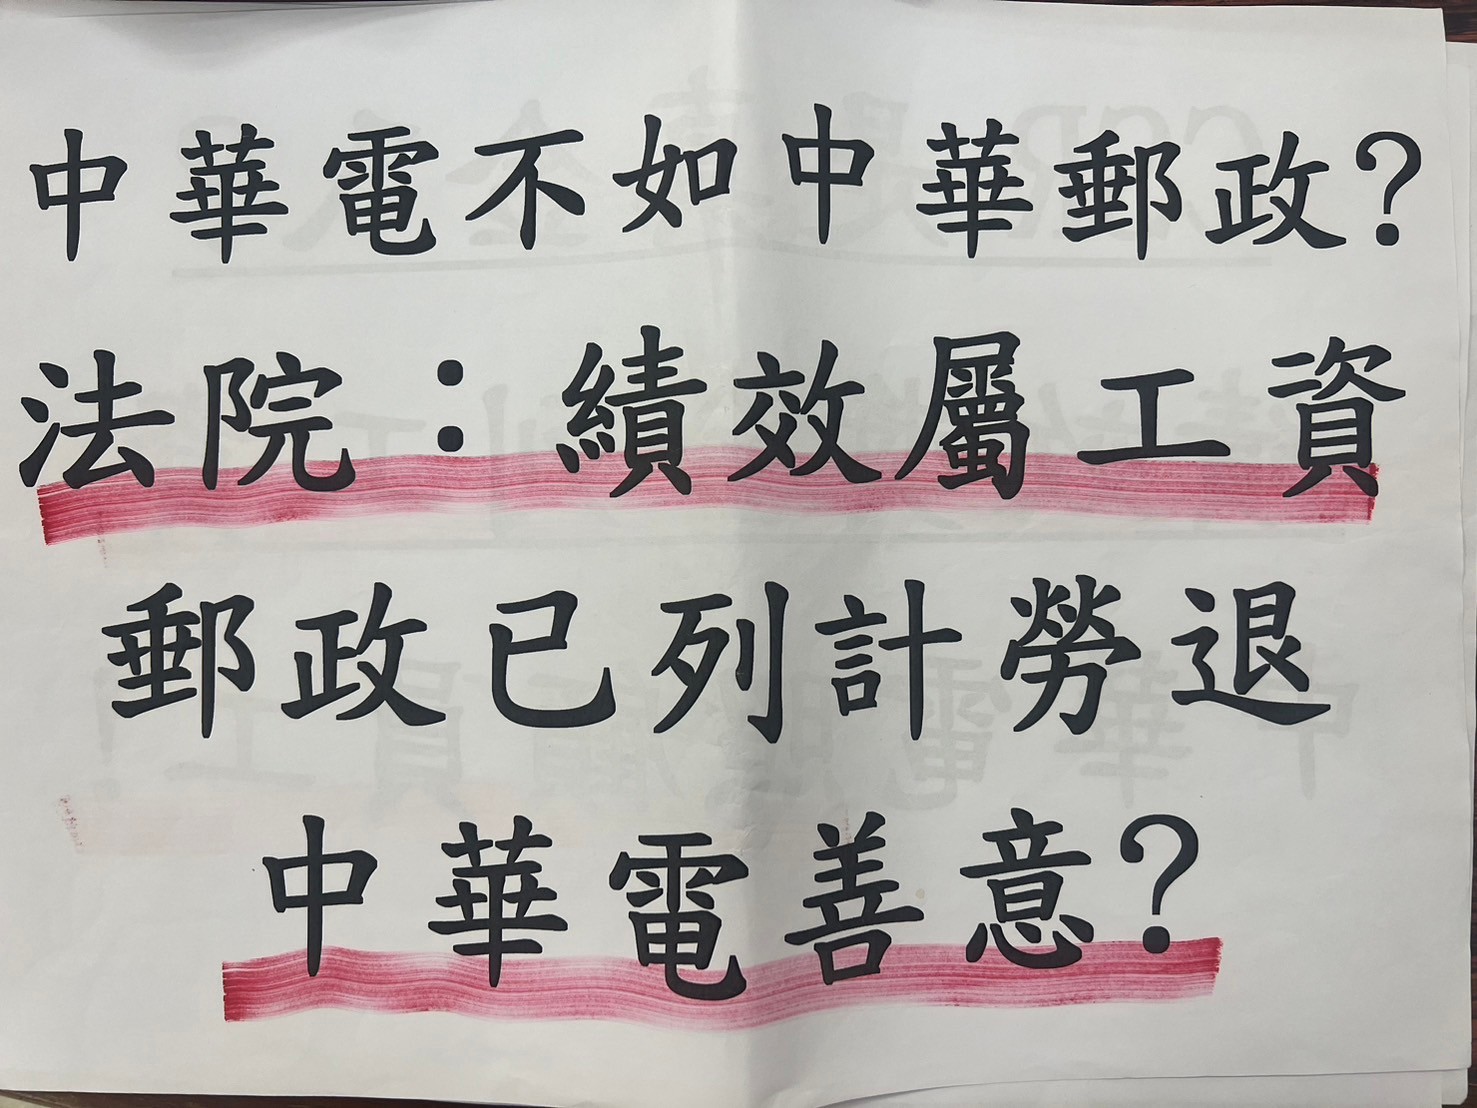 中華電不如中華郵政?
法院：績效屬工資
郵政已列計勞退
中華電善意?